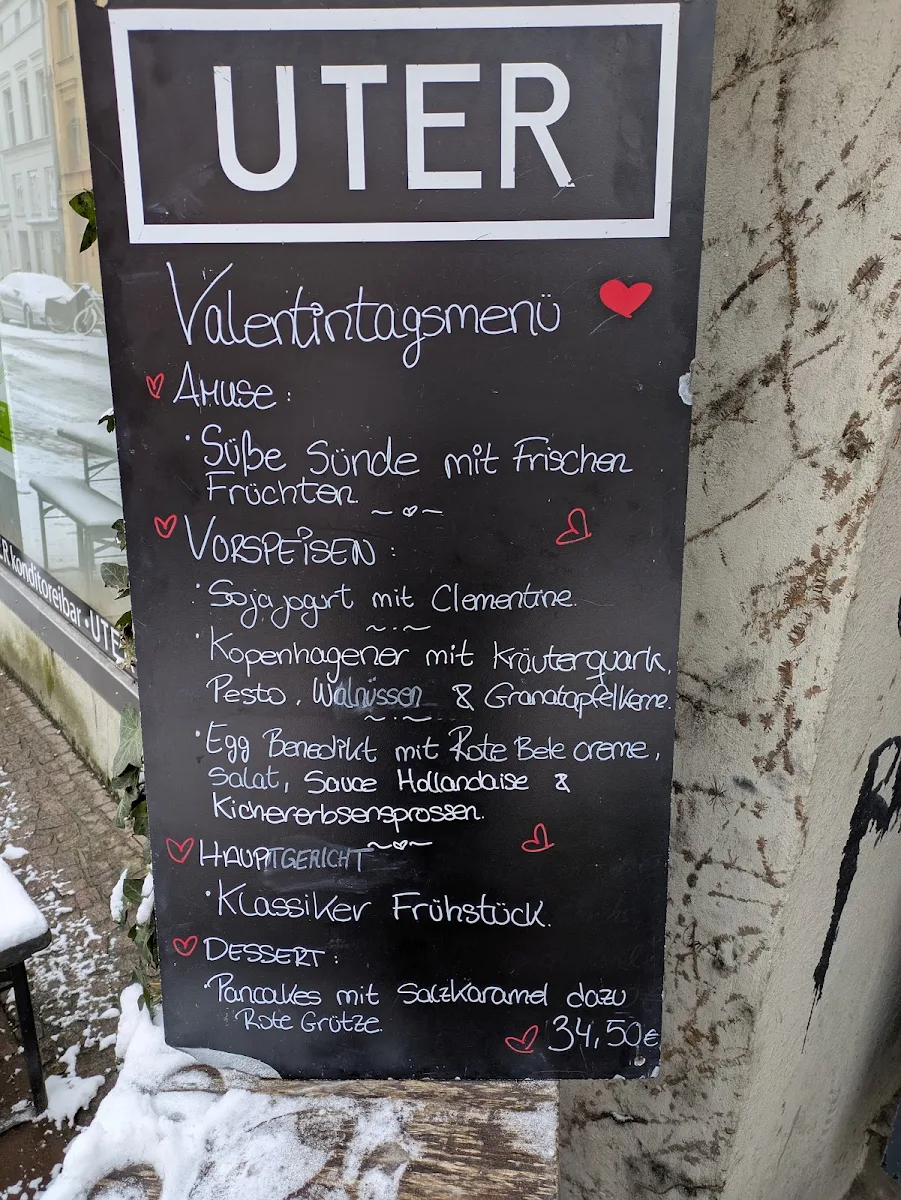 UTER
Valentintagsmenü
AMUSE:
· Süße Sünde mit Frischen
Früchten.
VORSPEISEN:
· Sojajogurt mit Clementine.
· Kopenhagener mit Kräuterquark,
Pesto, Walnüssen & Granatapfelkerne.
· Egg Benedikt mit Rote Bete creme,
Salat, Sauce Hollandaise &
Kichererbsensprossen.
HAUPTGERICHT
· Klassiker Frühstück.
DESSERT:
· Pancakes mit Salzkaramel dazu
Rote Grütze.
34,50€
ER konditoreibar · UTE